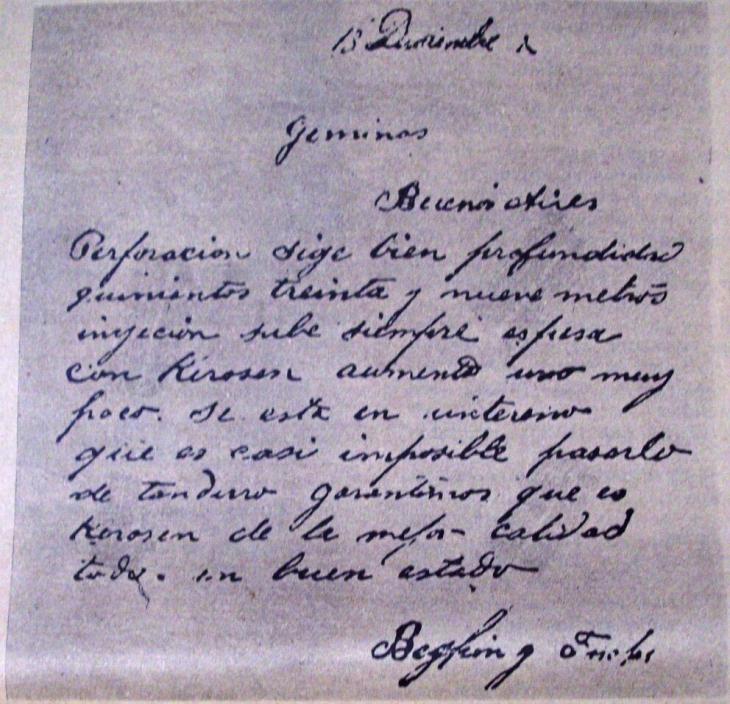 13 Diciembre
Geminas
Buenos Aires
Perforacion sige bien profundidad
quinientos treinta y nueve metros
inyeción sube siempre espesa
con Kerosen aumento muy
poco. Se esta en un tereno
que es casi imposible pasarlo
de tan duro garantimos que es
Kerosen de la mejor calidad
todo. en buen estado
Beghin y Fuchs